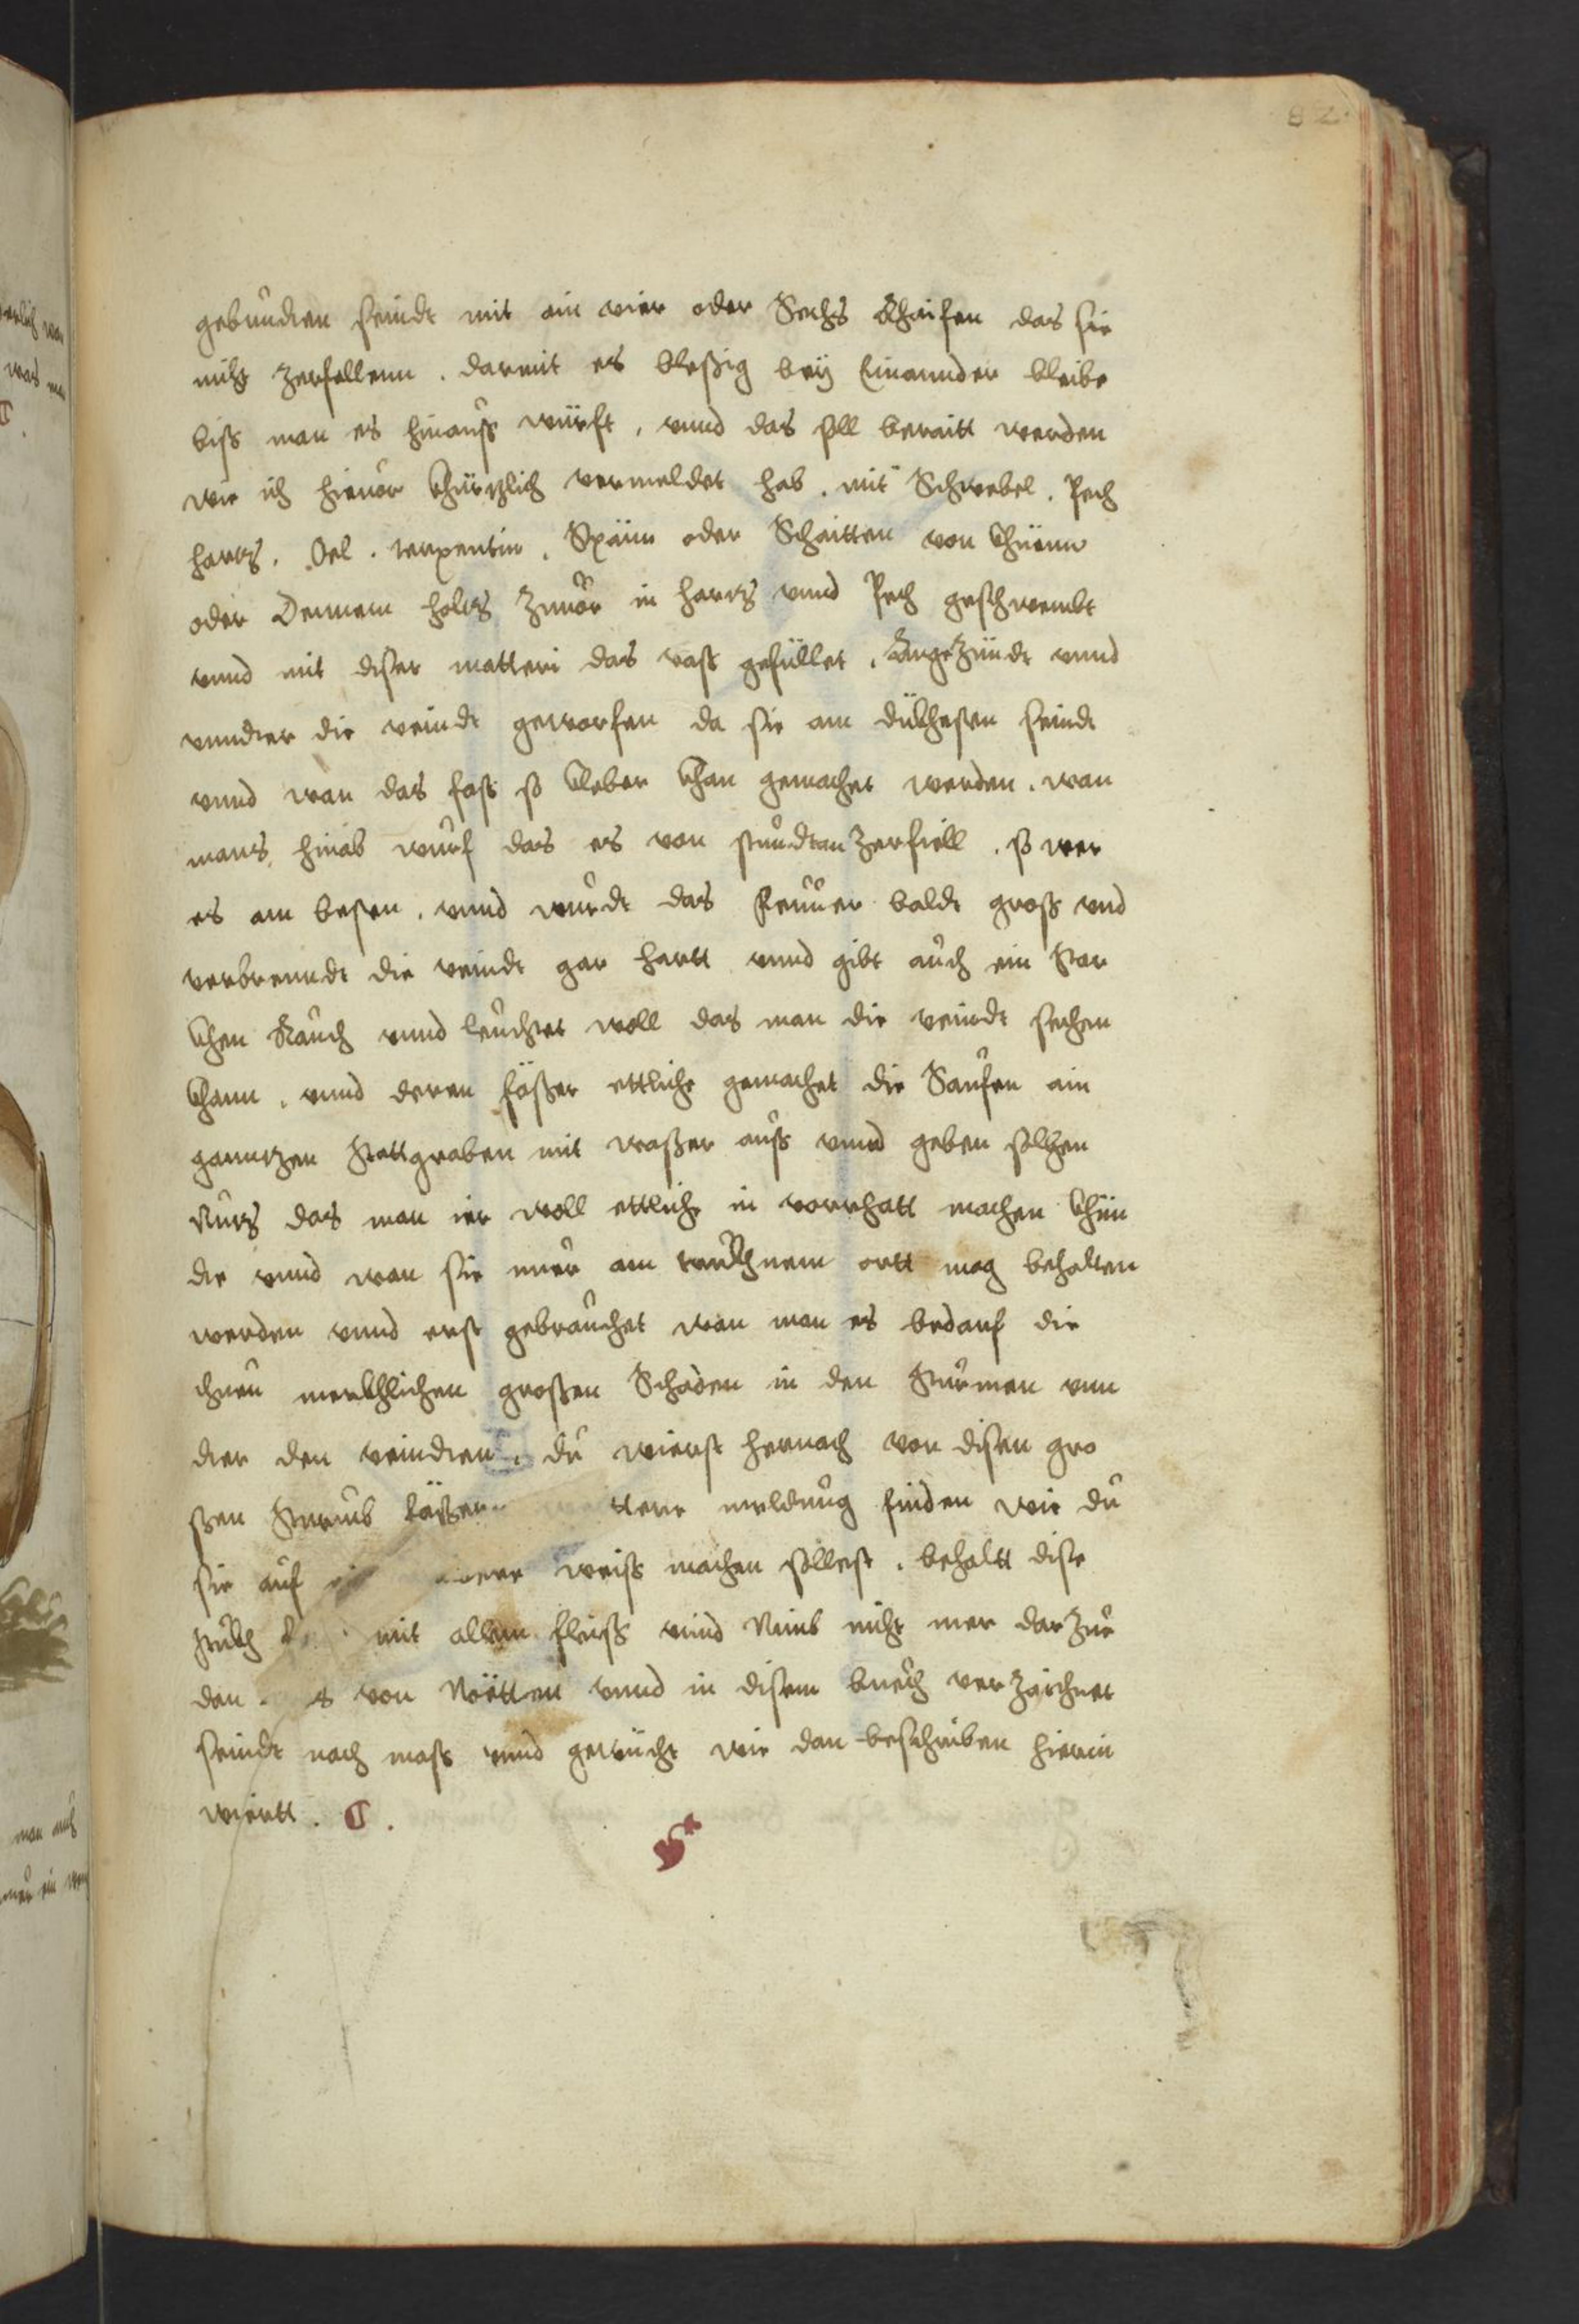 82.
gebundten seindt mit ain vier oder Sechs Rhaifen das sie
nicht zerfallenn . darmit es bleßig bey Einannder bleibe
biß man es hinauß würft , vnnd das soll beraitt werden
wie ich hieuor khürtzlich vermeldet hab . mit Schwebel . Pech
hartz . Oel . terpentin . Späün oder Schaitten von khüenn
oder Dennem holtz zuuor in hartz vnnd Pech geschwembt
vnnd mit diser matteri das vaß gefüllet . Angezündt vnnd
vnndter die veindt geworfen da sie am dükhesten seindt
vnnd wan das faß so kleber khan gemachet werden . wan
mans hinab wurf das es von stundtan zerfiell . so wer
es am besten . vnnd wurdt das feuuer baldt groß vnd
verbrenndt die veindt gar hartt vnnd gibt auch ein star
khen Rauch vnnd leuchtet woll das man die veindt sechen
khann . vnnd deren fäßer ettliche gemachet die Saufen ain
ganntzen Stattgraben mit waßer auß vnnd geben solchen
Nutz das man ier woll ettliche in vorrhatt machen khün
de vnnd wan sie nuer am trukhnem ortt mag behalten
werden vnnd erst gebrauchet wan man es bedarf die
thuen merkhlichen großen Schaden in den Sturmen vnn
dter den veindten , du wierst hernach von disen gro
ßen Sturmb fäßern ttere meldung finden wie du
sie auf weiß machen sollest . behaltt dise
stukh mit allem fleiß vnnd Nimb nicht mer darzue
dan von Nötten vnnd in disem buech verzaichnet
seindt nach maß vnnd gewücht wie dan beschriben hierin
wiertt .